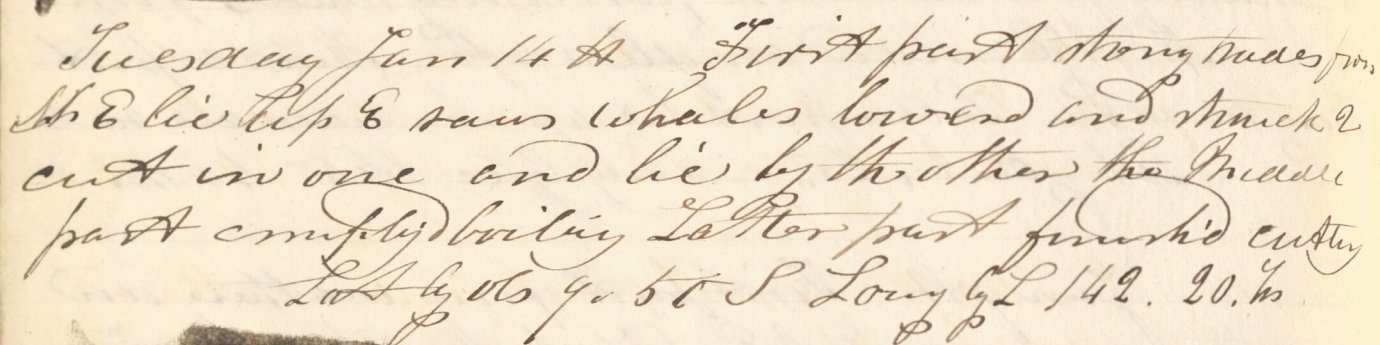 Tuesday Jan 14th First part strong trades from
Sth E lie up E saws whales lowerd and struck 2
cut in one and lie by th other the Middle
part employd boiling Latter part finishd cutting
Lat by obs 9. 50 S Long by L 142. 20. W